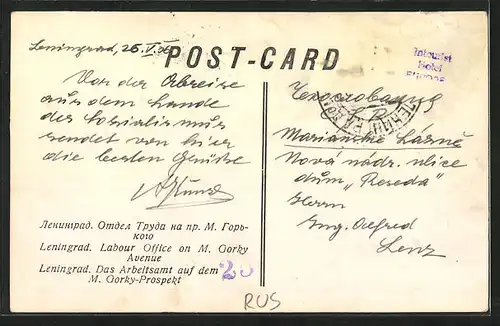 Leningrad, 26.V.36
POST-CARD
Intourist
Hotel
Europe
Vor der Abreise
aus dem Lande
des Sozialismus
sendet von hier
die besten Grüsse
Marianské Lázně
Nová nádr. ulice
dům „Reseda"
Herrn
Ing. Alfred
Lenz
Ленинград. Отдел Труда на пр. М. Горь-
кого
Leningrad. Labour Office on M. Gorky
Avenue
Leningrad. Das Arbeitsamt auf dem
M. Gorky-Prospekt
20
RUS